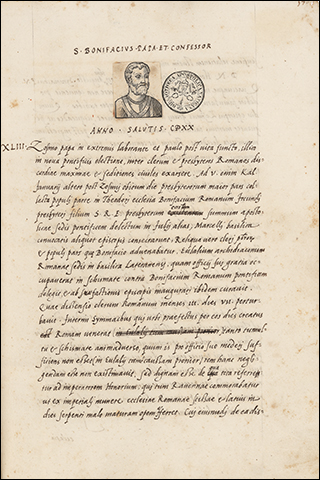 S. BONIFACIVS PAPA ET CONFESSOR
ANNO SALVTIS CDXX
XLIII. Zosimo papa in extremis laborante ac paulo post vita functo, illico
in nova pontificis electione, inter clerum et presbyteros Romanos dis
cordiae maximae et seditiones civiles exortae. Ad V. enim Kal
Ianuarij altero post Zosimij obitum die presbyterorum maior pars col
lecta populi parte in Theodorę ecclesia Bonifacium Romanum Iucundi
presbyteri filium S. R. E. presbyterum summum aposto
licae sedis pontificem delectum in Iulij alias, Marcelli basilica
convocatis aliquot episcopis consecrarunt. Reliqua vero cleri
et populi pars qui Bonifacio adversabatur, Eulalium archidiaconum
Romanae sedis in basilica Lateranensi, quam officij sui gratia oc
cupaverat in schismate contra Bonifacium Romanum pontificem
delegit et ab suffectionis episcopis inaugurari ibidem curavit.
Quae dissensio clerum Romanum menses III. dies VII. pertur
bavit. Interim Symmachus qui urbi praefectus per eos dies creatus
Romam venerat tanto tumul
tu et schismate animadverso, quum is pro officio suo mederi suf
ficiens non esset,
gendam esse non existimavit. Sed dignam esse de tota referen
tur ad imperatorem Honorium, qui tum Ravennae commorabatur
ut ex imperiali munere ecclesiae Romanae scissae et latius in
dies serpenti malo maturam opem ferret. Cui eiusmodi de ea dis